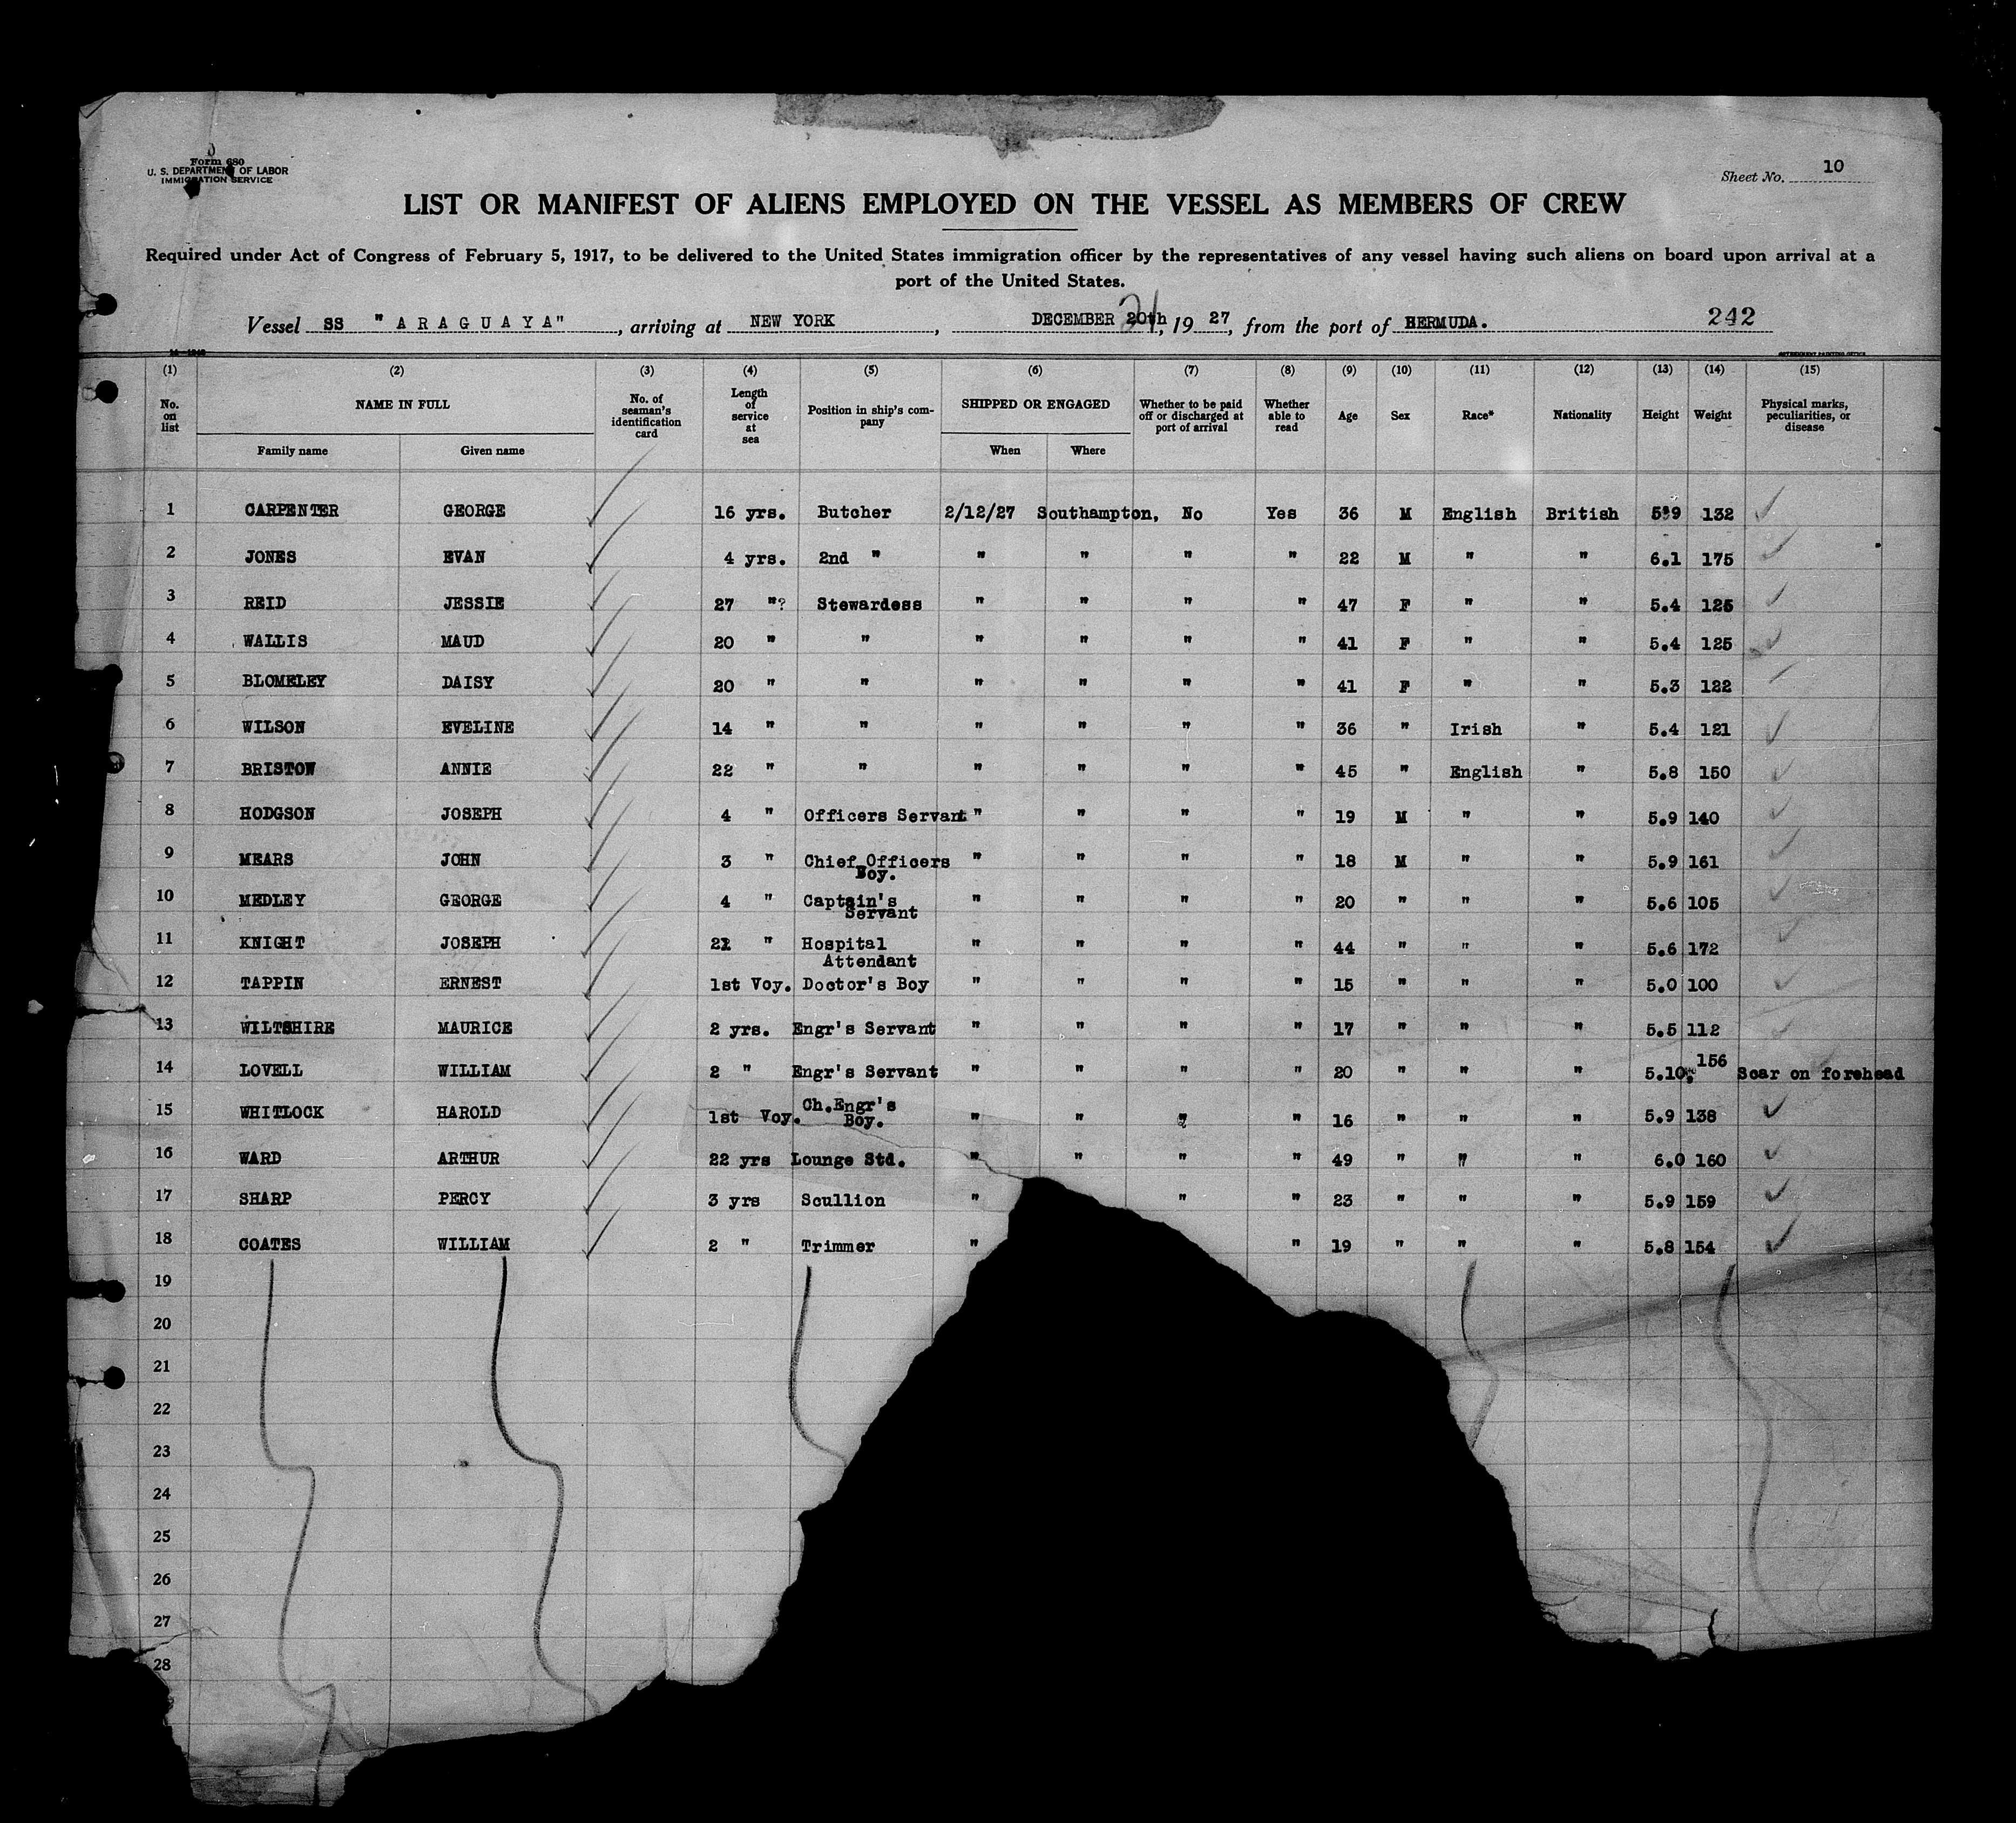 Form 680
U. S. DEPARTMENT OF LABOR
IMMIGRATION SERVICE
Sheet No. 10
LIST OR MANIFEST OF ALIENS EMPLOYED ON THE VESSEL AS MEMBERS OF CREW
Required under Act of Congress of February 5, 1917, to be delivered to the United States immigration officer by the representatives of any vessel having such aliens on board upon arrival at a
port of the United States.
Vessel SS "ARAGUAYA", arriving at NEW YORK, DECEMBER 20th 21, 19 27, from the port of BERMUDA. 242
GOVERNMENT PRINTING OFFICE
(1) (2) (3) (4) (5) (6) (7) (8) (9) (10) (11) (12) (13) (14) (15)
No. on list NAME IN FULL No. of seaman's identification card Length of service at sea Position in ship's company SHIPPED OR ENGAGED Whether to be paid off or discharged at port of arrival Whether able to read Age Sex Race* Nationality Height Weight Physical marks, peculiarities, or disease
Family name Given name When Where
1 CARPENTER GEORGE 16 yrs. Butcher 2/12/27 Southampton, No Yes 36 M English British 5'9 132
2 JONES EVAN 4 yrs. 2nd " " " " " 22 M " " 6.1 175
3 REID JESSIE 27 "? Stewardess " " " " 47 F " " 5.4 125
4 WALLIS MAUD 20 " " " " " " 41 F " " 5.4 125
5 BLOMELEY DAISY 20 " " " " " " 41 F " " 5.3 122
6 WILSON EVELINE 14 " " " " " " 36 " Irish " 5.4 121
7 BRISTOW ANNIE 22 " " " " " " 45 " English " 5.8 150
8 HODGSON JOSEPH 4 " Officers Servant " " " " 19 M " " 5.9 140
9 MEARS JOHN 3 " Chief Officers Boy. " " " " 18 M " " 5.9 161
10 MEDLEY GEORGE 4 " Captain's Servant " " " " 20 " " " 5.6 105
11 KNIGHT JOSEPH " Hospital Attendant " " " " 44 " " " 5.6 172
12 TAPPIN ERNEST 1st Voy. Doctor's Boy " " " " 15 " " " 5.0 100
13 WILTSHIRE MAURICE 2 yrs. Engr's Servant " " " " 17 " " " 5.5 112
14 LOVELL WILLIAM 2 " Engr's Servant " " " " 20 " " " 5.10 156 Scar on forehead
15 WHITLOCK HAROLD 1st Voy. Ch.Engr's Boy. " " " " 16 " " " 5.9 138
16 WARD ARTHUR 22 yrs Lounge Std. " " " " 49 " " " 6.0 160
17 SHARP PERCY 3 yrs Scullion " " " 23 " " " 5.9 159
18 COATES WILLIAM 2 " Trimmer " " 19 " " " 5.8 154
19
20
21
22
23
24
25
26
27
28